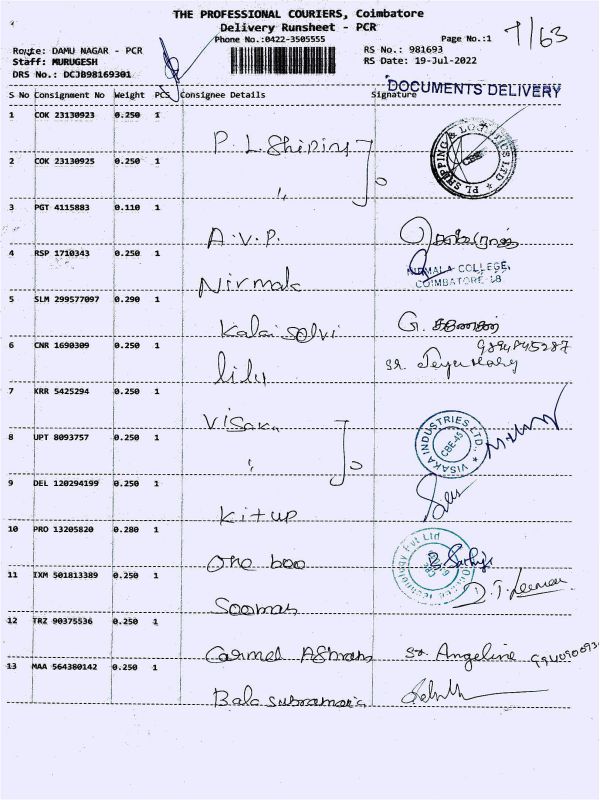 THE PROFESSIONAL COURIERS, Coimbatore
Delivery Runsheet - PCR
Phone No.:0422-3505555
Page No.:1
7/63
Route: DAMU NAGAR - PCR
RS No.: 981693
Staff: MURUGESH
RS Date: 19-Jul-2022
DRS No.: DCJB98169301
DOCUMENTS DELIVERY
S No Consignment No Weight PCS Consignee Details Signature
1 COK 23130923 0.250 1
P. L. Shiping
PL SHIPPING & LOGISTICS LTD CBE
2 COK 23130925 0.250 1
"
3 PGT 4115883 0.110 1
A.V.P.
4 RSP 1710343 0.250 1
Nirmala
NIRMALA COLLEGE,
COIMBATORE-18
5 SLM 299577097 0.290 1
Kalai selvi
G. கணேசன்
6 CNR 1690309 0.250 1
9894845287
lily
sr. Jeya Mary
7 KRR 5425294 0.250 1
Visaka
VISAKA INDUSTRIES LTD. CBE-45
8 UPT 8093757 0.250 1
"
9 DEL 120294199 0.250 1
kit up
10 PRO 13205820 0.280 1
One boo
Technology Pvt Ltd
11 IXM 501813389 0.250 1
Sooman
12 TRZ 90375536 1
Carmel Ashram
sr. Angeline
13 MAA 564380142 0.250 1
Bala subramania